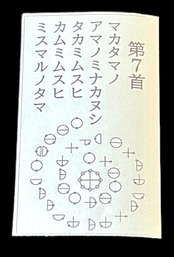 第7首
マカタマノ
アマノミナカヌシ
タカミムスヒ
カムミムスヒ
ミスマルノタマ